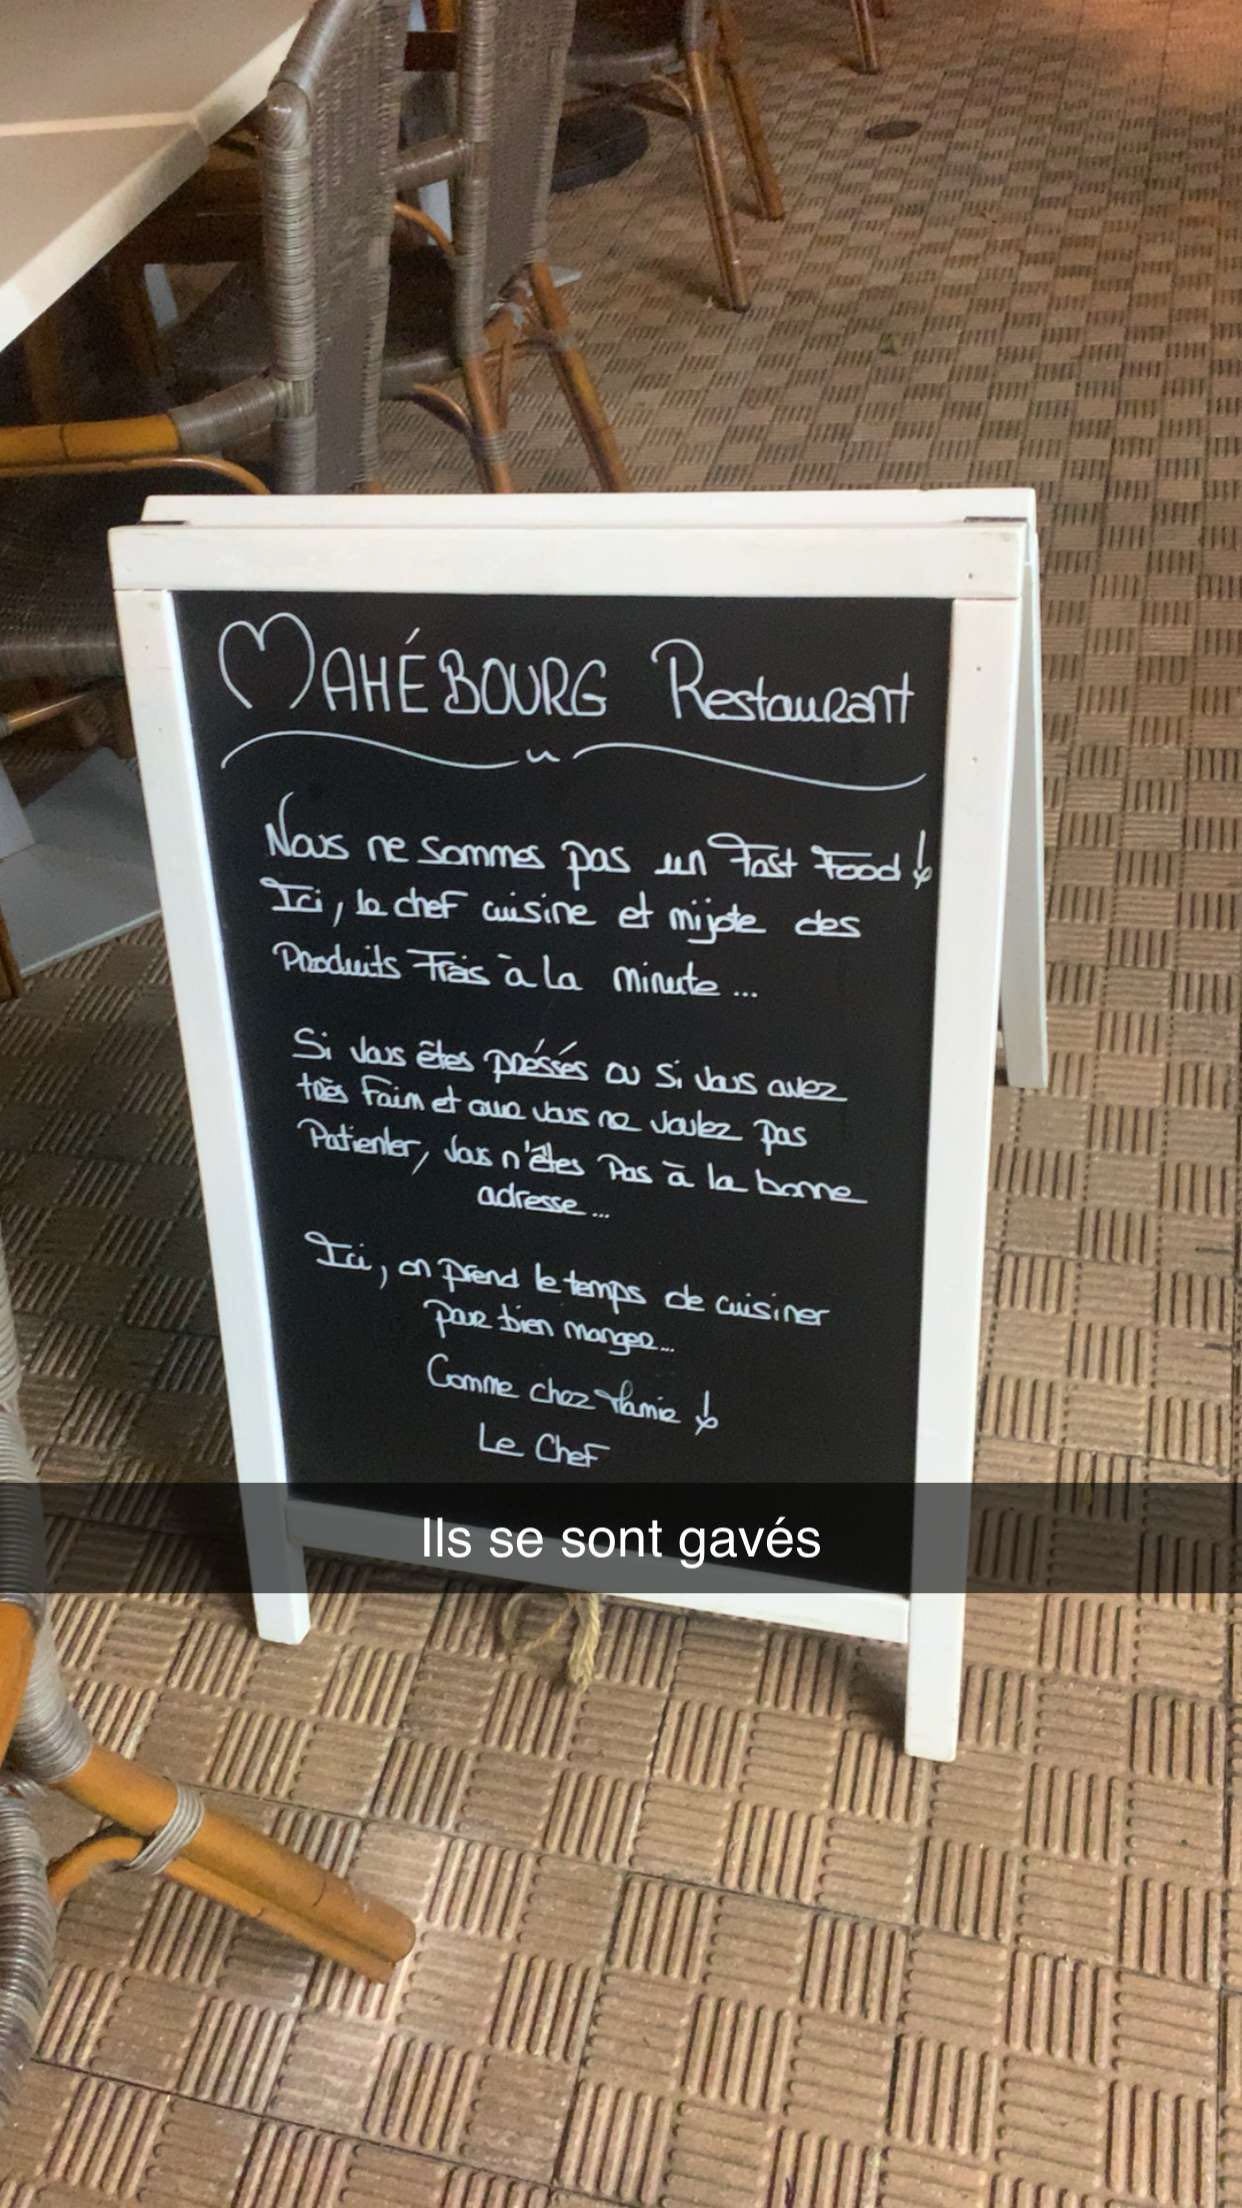 MAHÉBOURG Restaurant
Nous ne sommes pas un Fast Food !
Ici, le chef cuisine et mijote des
Produits Frais à la minute...
Si vous êtes préssés ou si vous avez
très Faim et que vous ne voulez pas
Patienter, vous n'êtes Pas à la bonne
adresse...
Ici, on prend le temps de cuisiner
pour bien manger...
Comme chez Mamie !
Le Chef
Ils se sont gavés